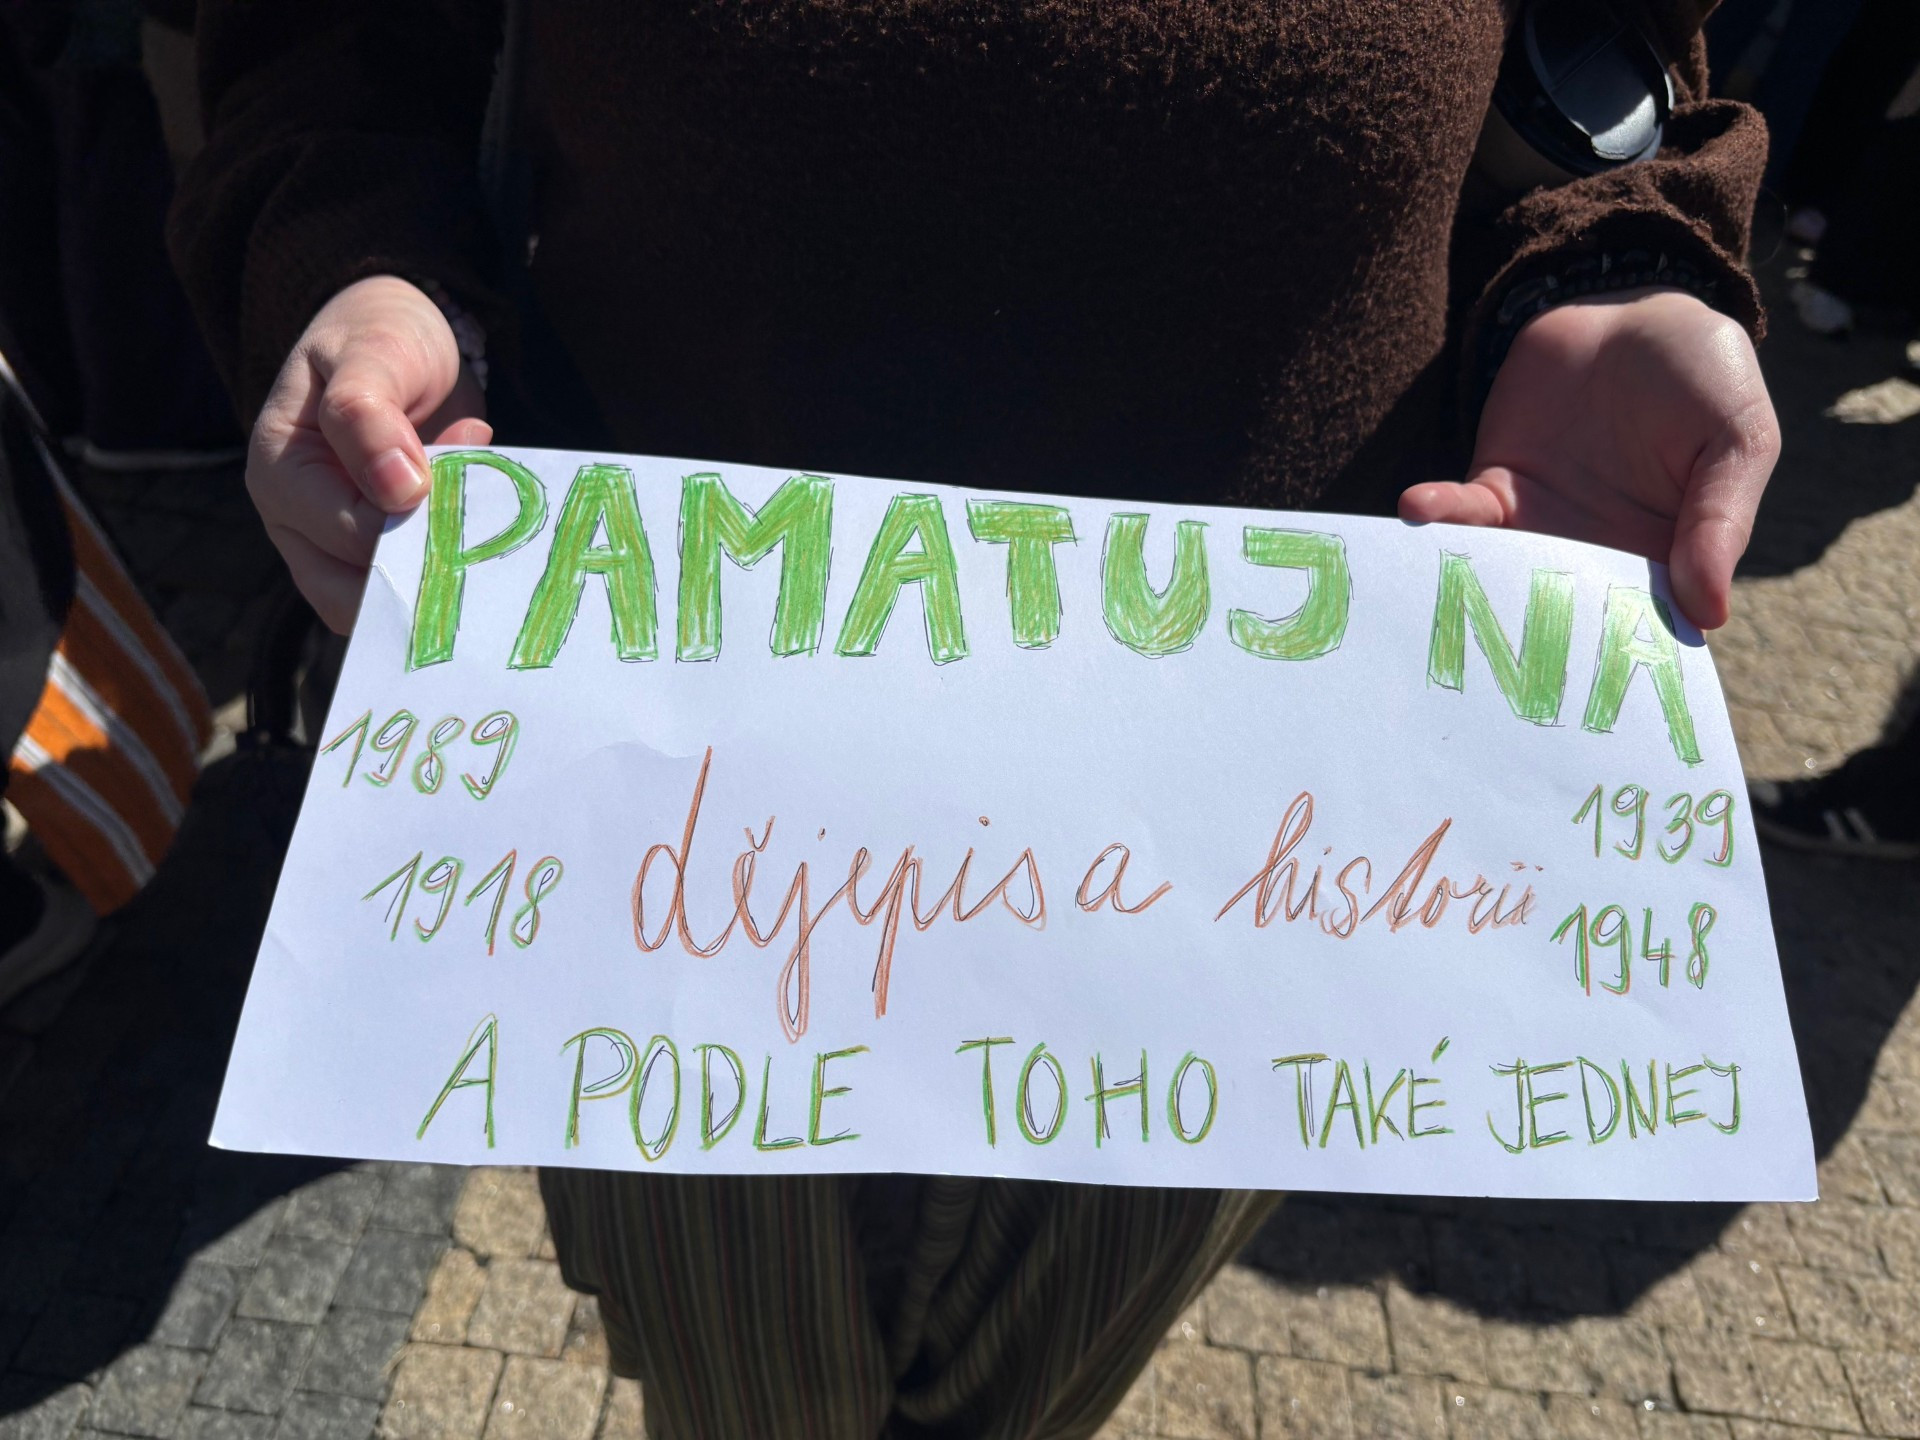 PAMATUJ NA
1989
1939
dějepis a historii
1918
1948
A PODLE TOHO TAKÉ JEDNEJ